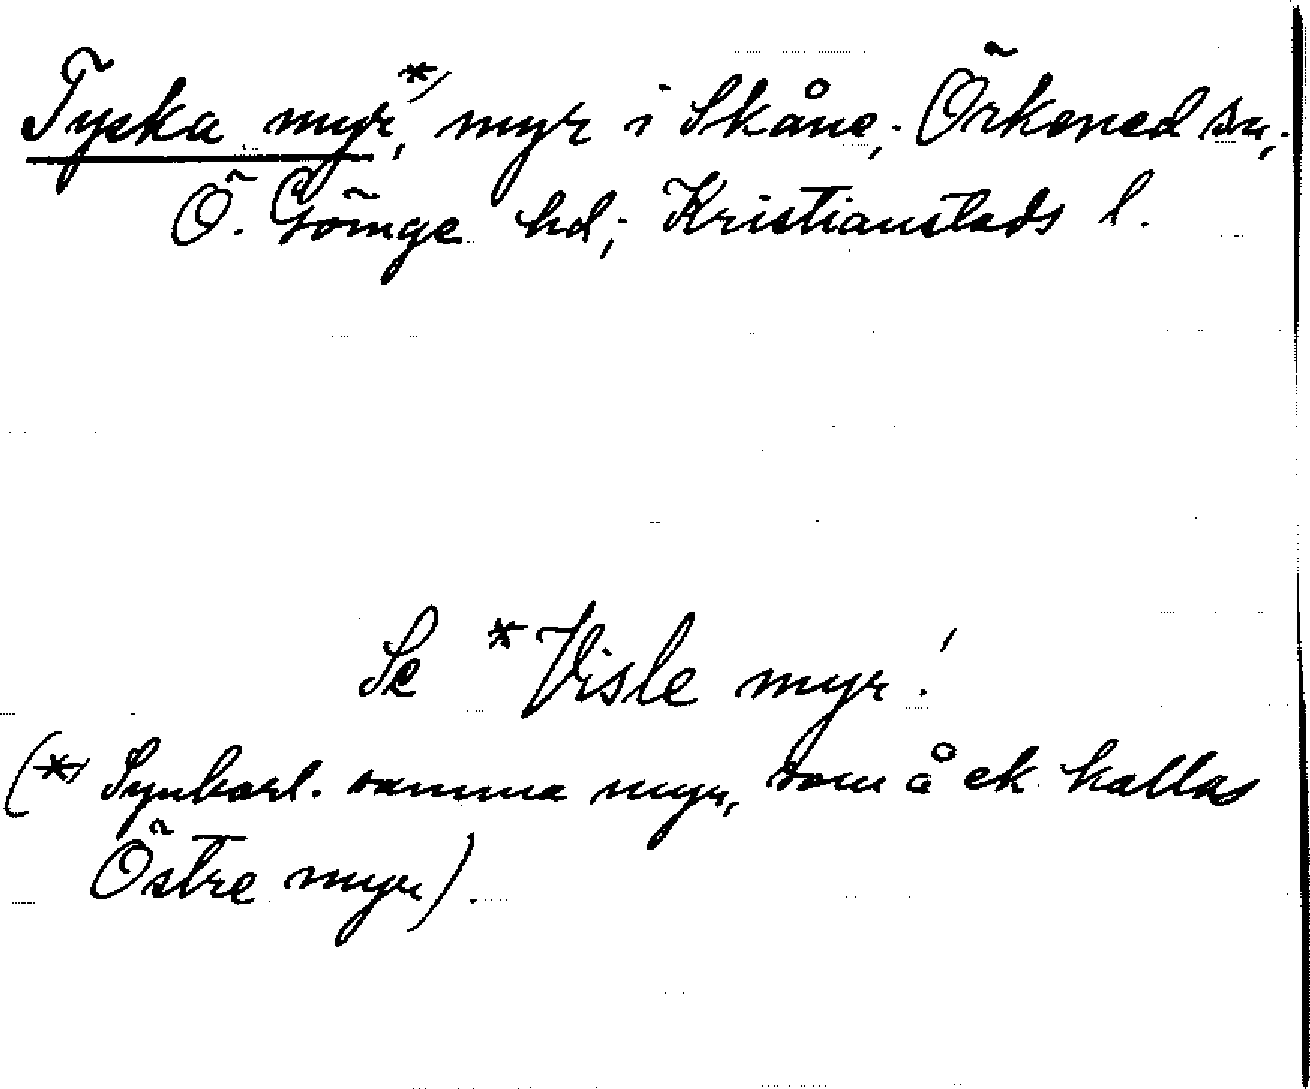 Tyska myr*), myr i Skåne; Örkened sn;
Ö. Göinge hd; Kristianstads l.
Se *Visle myr!
(*) Synbarl. samma myr, som å ek. kallas
Östre myr).